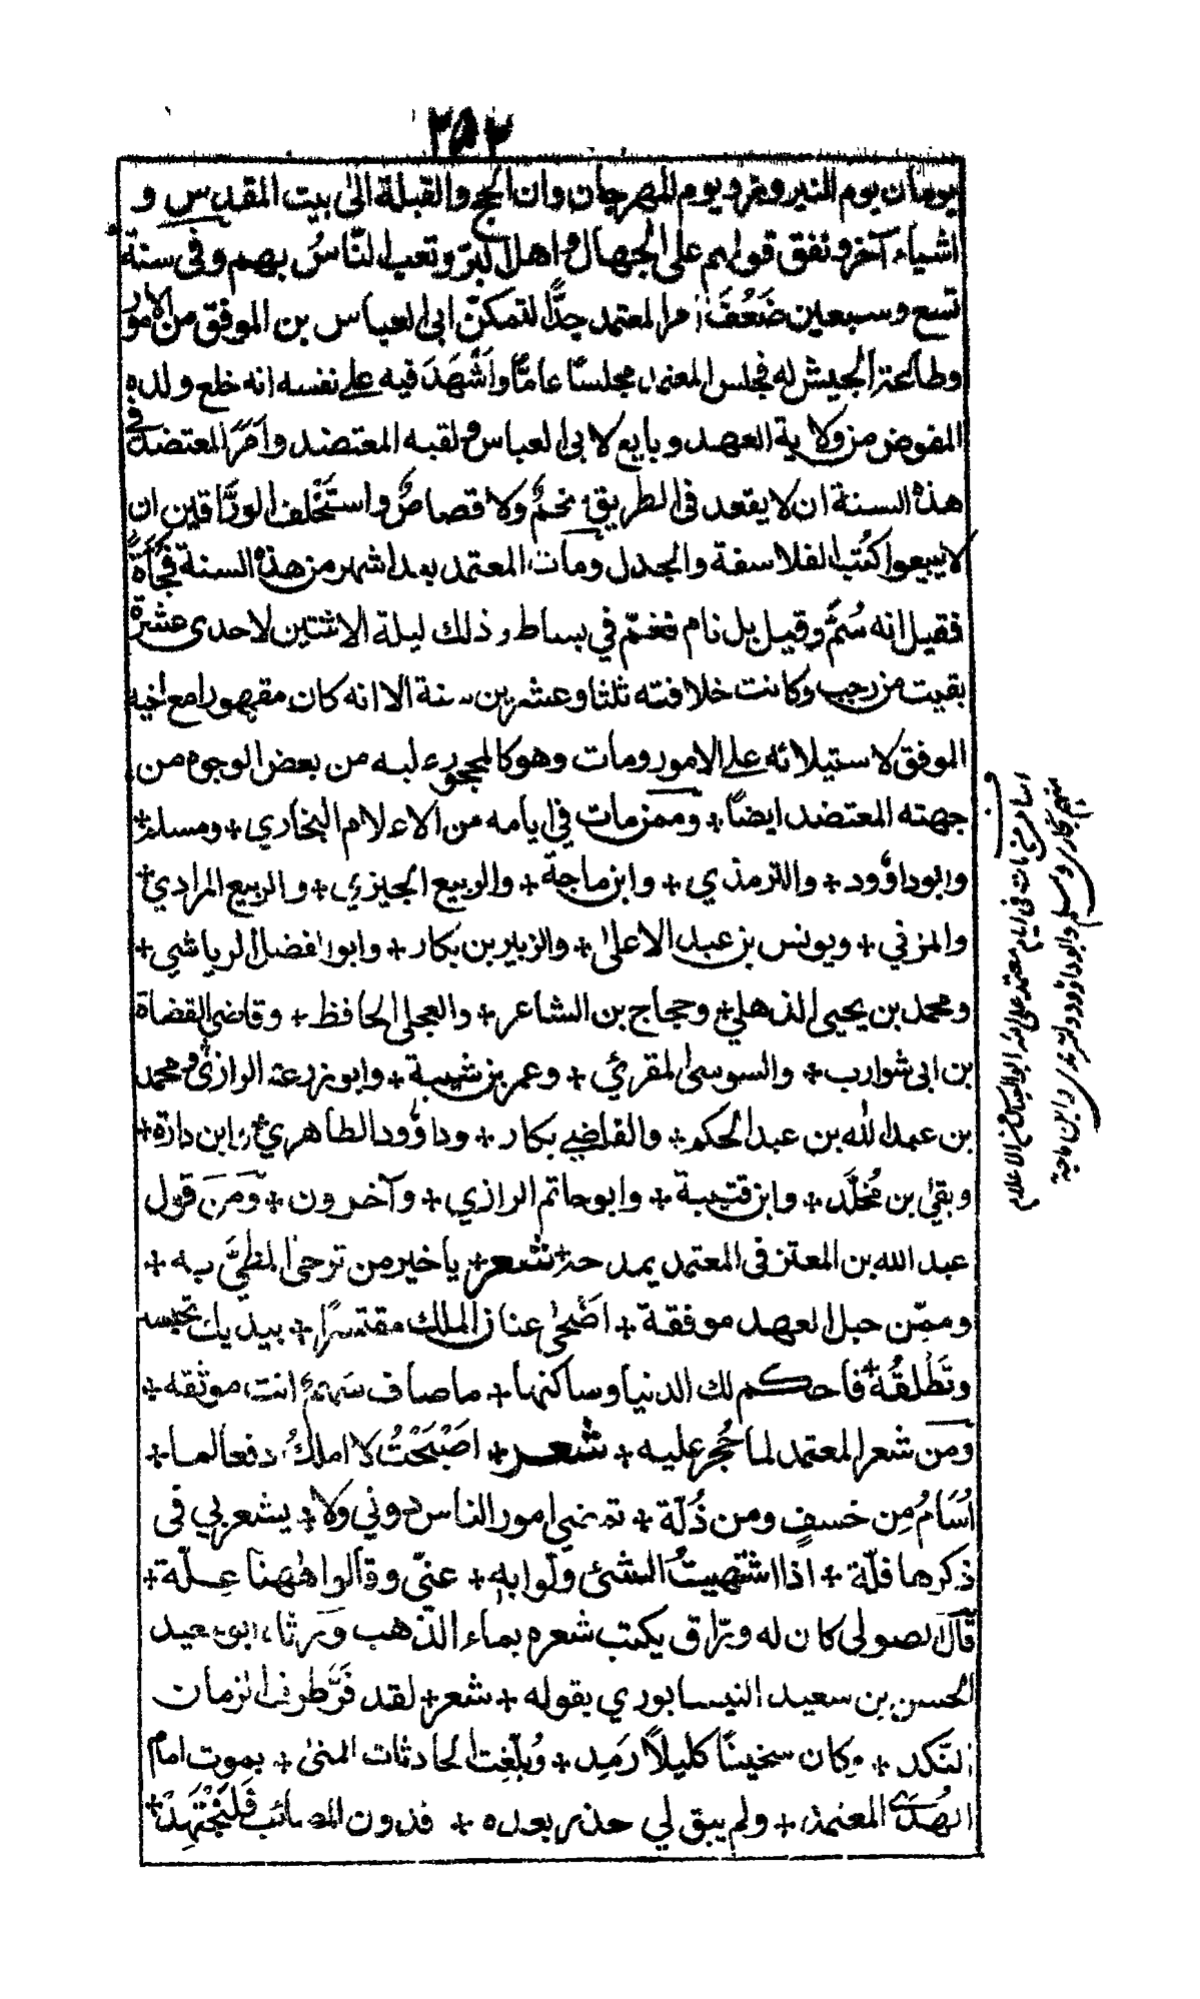 ٢٥٢
يومان يوم النيروز ويوم المهرجان وان الحج والقبلة الى بيت المقدس و
اشياء آخر ونفق قولهم على الجهال واهل البر وتعب الناسُ بهم وفى سنة
تسع وسبعين ضَعُفَ امر المعتمد جدًّا لتمكّن ابى العباس بن الموفق من الامور
وطاعة الجيش له فجلس المعتمد مجلسًا عامًّا واَشْهَدَ فيه على نفسه انه خلع ولده
المفوض من ولاية العهد وبايع لابى العباس ولقبه المعتضد واَمَرَ المعتضد فى
هذه السنة ان لا يقعد فى الطريق منجمٌ ولا قصاصٌ واستَحْلف الورّاقين ان
لا يبيعوا كُتُب الفلاسفة والجدل ومات المعتمد بعد اشهر من هذه السنة فُجَأَةً
فقيل انه سُمَّ وقيل بل نام فغمّ في بساط وذلك ليلة الاثنين لاحدى عشرة
بقيت من رجب وكانت خلافته ثلثا وعشرين سنة الا انه كان مقهورا مع اخيه
الموفق لاستيلائه على الامور ومات وهو كالمحجور عليه من بعض الوجوه من
جهته المعتضد ايضًا + وممن مات في ايامه من الاعلام البخاري + ومسلم +
وابو داؤود + والترمذي + وابن ماجة + والربيع الجيزي + والربيع المرادي +
والمزني + ويونس بن عبد الاعلى + والزبير بن بكار + وابو الفضل الرياشي +
ومحمد بن يحيى الذهلي + وحجاج بن الشاعر + والعجلى الحافظ + وقاضى القضاة
بن ابى شوارب + والسوسى المقرئي + وعمر بن شيبة + وابو زرعة الرازى + ومحمد
بن عبد الله بن عبد الحكم + والقاضي بكار + وداؤود الظاهري + وابن دارة +
وبقي بن مُخلَّد + وابن قتيبة + وابو حاتم الرازي + وآخرون + ومن قول
عبد الله بن المعتز فى المعتمد يمدحه + شعر + ياخير من ترجى المطيَّ به +
وممّن حبل العهد موفقة + اَضْحى عنان الملك مقتسرًا + بيديك تحبسه
وتَطْلقُهُ + فاحكم لك الدنيا وساكنها + ما صاف سهم انت موثقه +
ومن شعر المعتمد لما حُجر عليه + شعر + اصْبَحْتُ لا املكُ دفعا لما +
اُسَامُ مِن خسفٍ ومن ذُلّة + تمضي امور الناس دوني ولا + يشعر بي فى
ذكرها قلّة + اذا اشتهيتُ الشئ ولّوا به + عنّي وقالوا ههنا علّة +
قال الصولى كان له ورّاق يكتب شعره بماء الذهب ورثاه ابو سعيد
الحسن بن سعيد النيسابوري بقوله + شعر + لقد قَرَّ طرف الزمان
النكد + وكان سخينًا كليلاً رَمِد + وبُلّغِت الحادثات المنى + بموت امام
الهُدى المعتمد + ولم يبق لي حذر بعده + فدون المصائب فَلْتَجْتَهِدْ +
اسا من مات فى ايام معتمد على الله ابو العباس من الاعلام
منهم بخارى ومسلم وابو داؤود وترمذى وابن ماجة